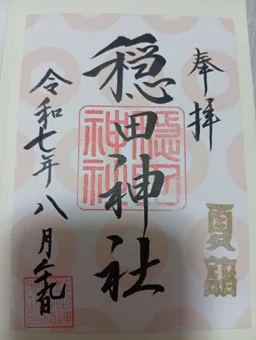 奉拝
夏詣
穏田神社
穏田神社
令和七年八月